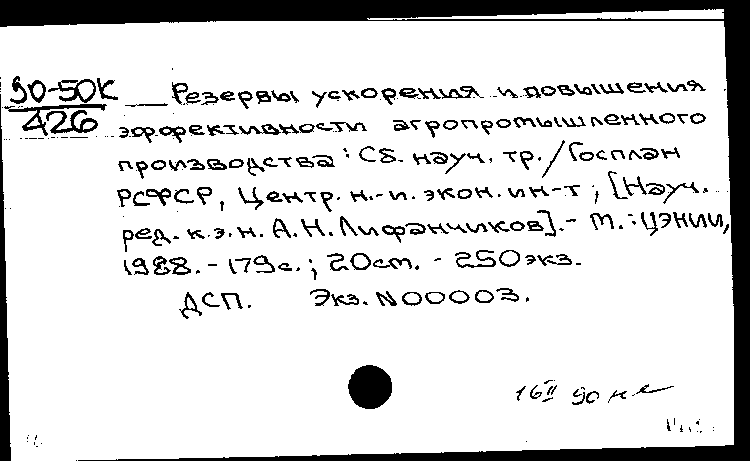 90-50К
426
Резервы ускорения и повышения
эффективности агропромышленного
производства : Сб. науч. тр. / Госплан
РСФСР, Центр. н.-и. экон. ин-т ; [Науч.
ред. к.э.н. А.Н. Лифанчиков]. - М. : ЦЭНИИ,
1988. - 179с. ; 20см. - 250экз.
ДСП. Экз. N00003.
16 II 90